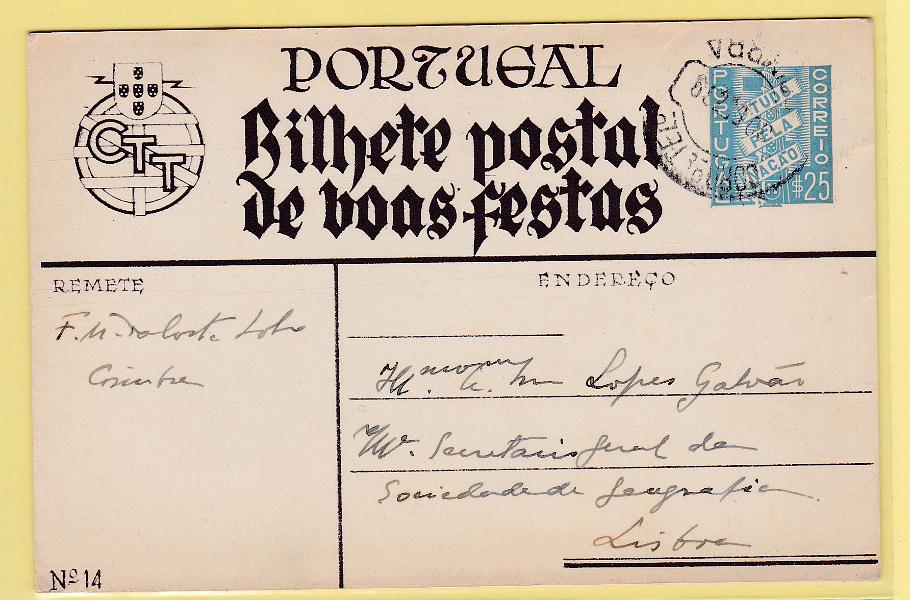 PORTUGAL
CTT
Bilhete postal
de boas festas
PORTUGAL
CORREIO
TUDO
PELA
NAÇÃO
$25
REMETE
F. M. da Costa Lobo
Coimbra
ENDEREÇO
Lopes Galvão
Secretario Geral da
Sociedade de Geografia
Lisboa
Nº 14